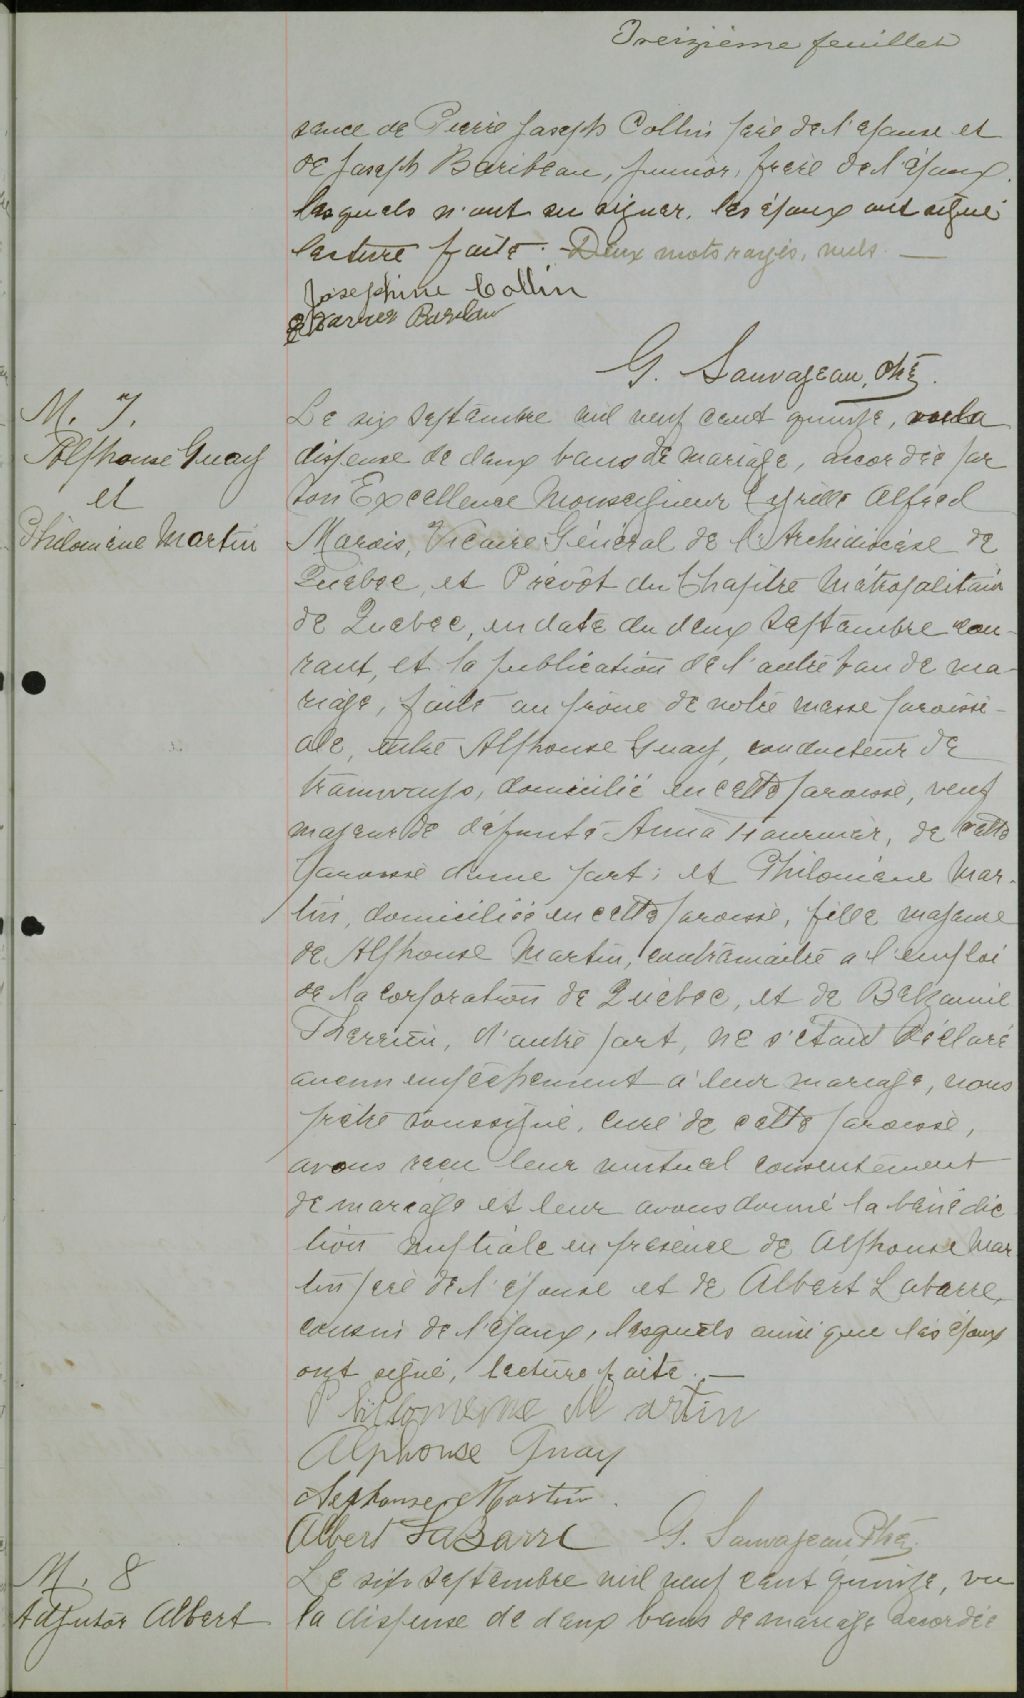 Treizième feuillet
sence de Pierre Joseph Collin père de l'épouse et
de Joseph Baribeau, junior, frère de l'époux,
lesquels n'ont su signer, les époux ont signé
lecture faite. Deux mots rayés, nuls. —
Joséphine Collin
G. Sauvageau, Ptre.
M. 7.
Alphonse Guay
et
Philomène Martin
Le six septembre mil neuf cent quinze, vu la
dispense de deux bans de mariage, accordée par
Son Excellence Monseigneur Cyrille Alfred
Marois, Vicaire Général de l'Archidiocèse de
Québec, et Prévôt du Chapitre Métropolitain
de Québec, en date du deux septembre cou-
rant, et la publication de l'autre ban de ma-
riage, faite au prône de notre messe paroissi-
ale, entre Alphonse Guay, conducteur de
tramways, domicilié en cette paroisse, veuf
majeur de défunte Anna Fournier, de cette
paroisse d'une part; et Philomène Mar-
tin, domiciliée en cette paroisse, fille majeure
de Alphonse Martin, contremaître à l'emploi
de la Corporation de Québec, et de
Therrien, d'autre part, ne s'étant déclaré
aucun empêchement à leur mariage, nous
prêtre soussigné, curé de cette paroisse,
avons reçu leur mutuel consentement
de mariage et leur avons donné la bénédic
tion nuptiale en présence de Alphonse Mar
tin père de l'épouse et de Albert Labarre,
cousin de l'époux, lesquels ainsi que les époux
ont signé, lecture faite. —
Philomène Martin
Alphonse Guay
Alphonse Martin.
Albert LaBarre G. Sauvageau Ptre.
M. 8
Adjutor Albert
Le six septembre mil neuf cent quinze, vu
la dispense de deux bans de mariage accordée